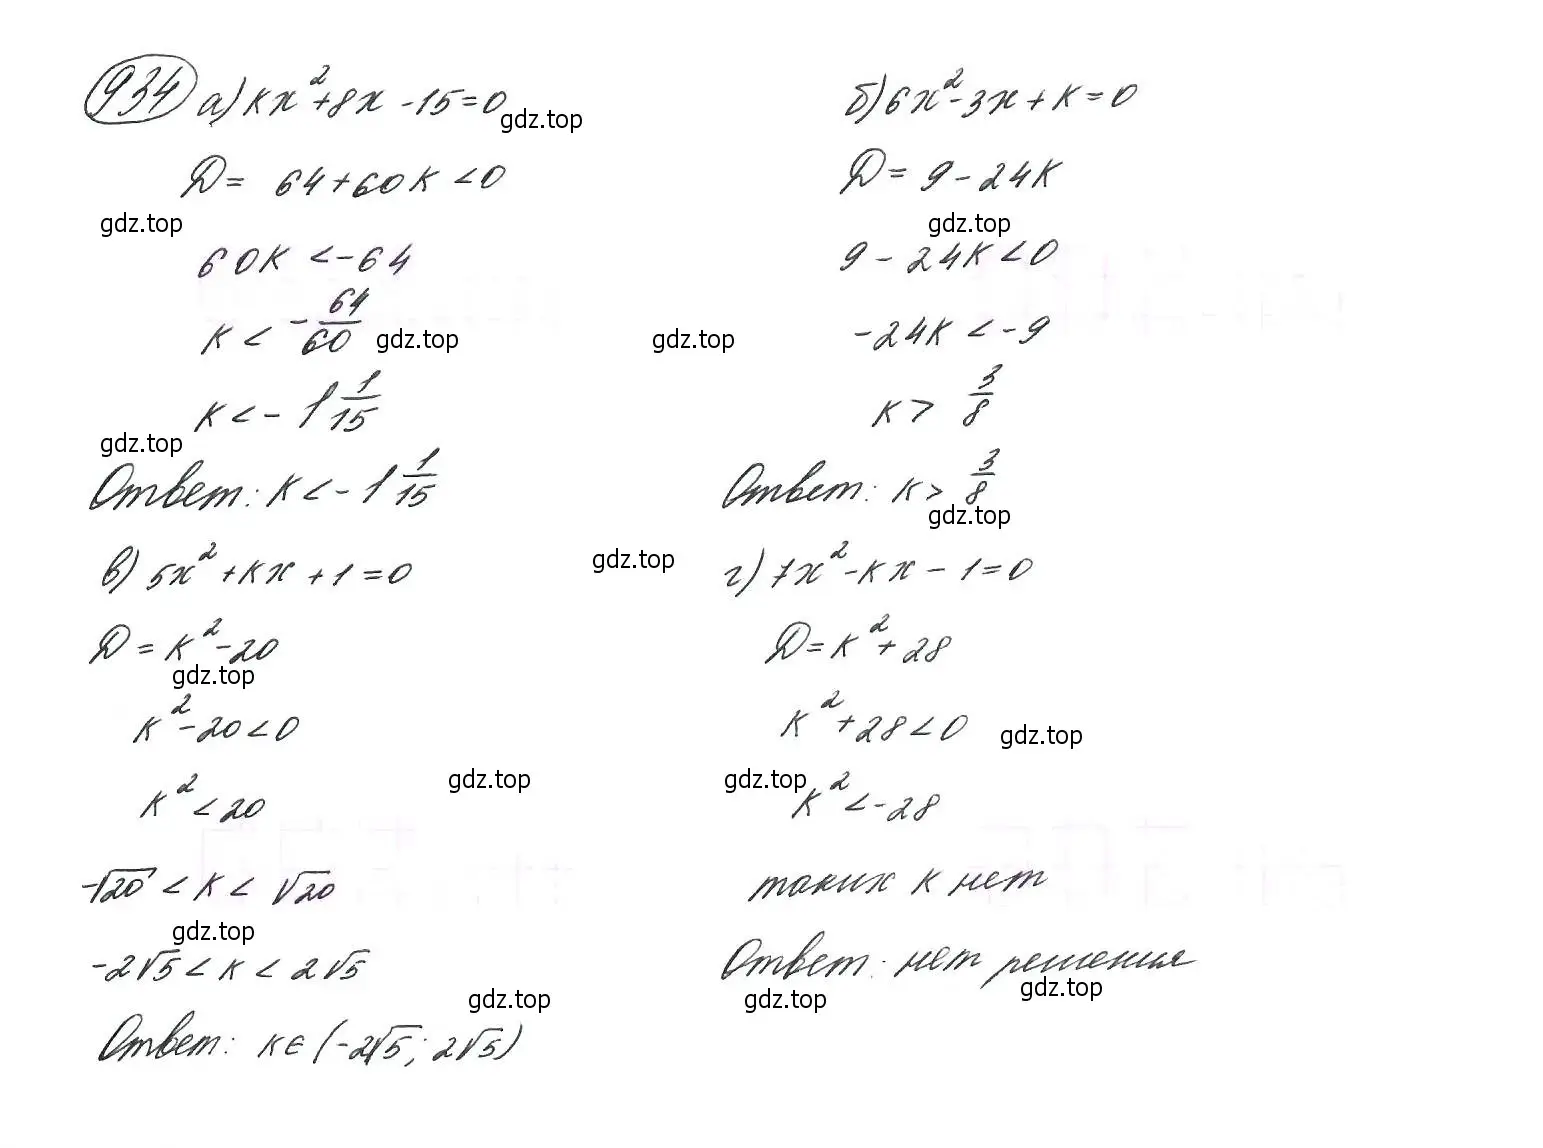 934 а) kx²+8x-15=0
gdz.top
D = 64+60k <0
gdz.top
60k <-64
k < -64/60
gdz.top
k <- 1 1/15
gdz.top
Ответ: k <- 1 1/15
б) 6x²-3x+k=0
D = 9-24k
gdz.top
9-24k<0
gdz.top
-24k < -9
k > 3/8
Ответ: k > 3/8
gdz.top
в) 5x²+kx+1=0
gdz.top
D = k²-20
gdz.top
k²-20<0
k²<20
gdz.top
-√20 < k < √20
gdz.top
-2√5 < k < 2√5
gdz.top
Ответ: k∈(-2√5; 2√5)
г) 7x²-kx-1=0
D=k²+28
k²+28<0
gdz.top
gdz.top
k²<-28
таких k нет
Ответ: нет решения
gdz.top
gdz.top